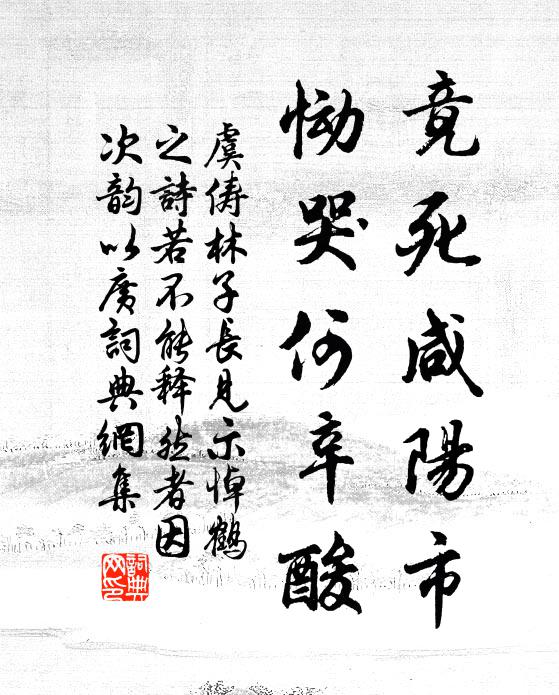 竟死咸陽市
慟哭何辛酸
虞俦林子長見示悼鶴
之詩若不能释然者因
次韵以廣詞典網集
詞典
网印